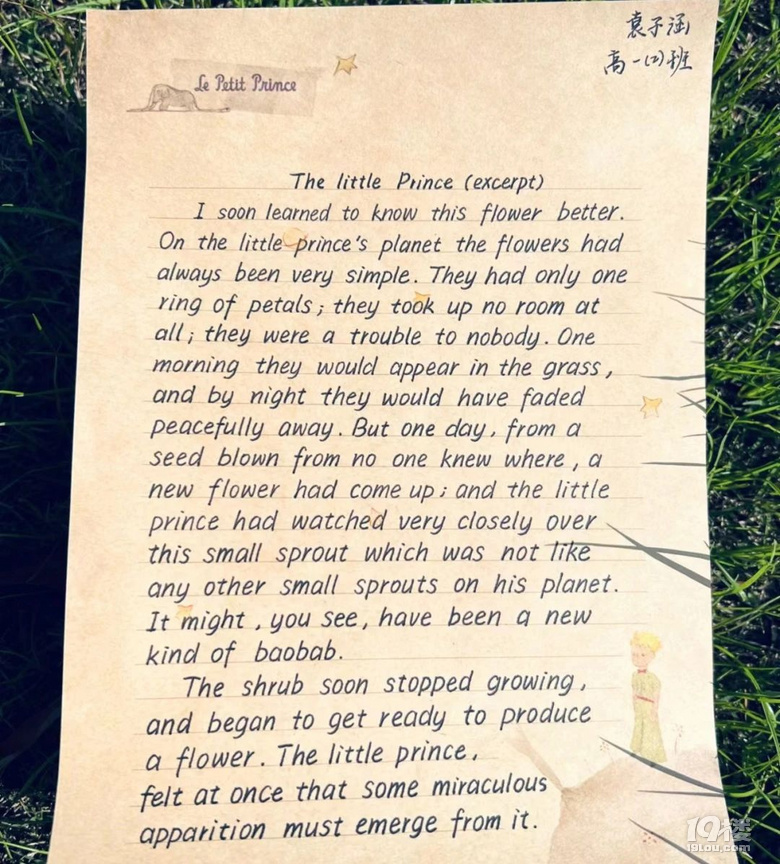 袁子涵
高一(2)班
Le Petit Prince
The little Prince (excerpt)
I soon learned to know this flower better.
On the little prince's planet the flowers had
always been very simple. They had only one
ring of petals; they took up no room at
all; they were a trouble to nobody. One
morning they would appear in the grass,
and by night they would have faded
peacefully away. But one day, from a
seed blown from no one knew where, a
new flower had come up; and the little
prince had watched very closely over
this small sprout which was not like
any other small sprouts on his planet.
It might, you see, have been a new
kind of baobab.
The shrub soon stopped growing,
and began to get ready to produce
a flower. The little prince,
felt at once that some miraculous
apparition must emerge from it.
19楼
19lou.com